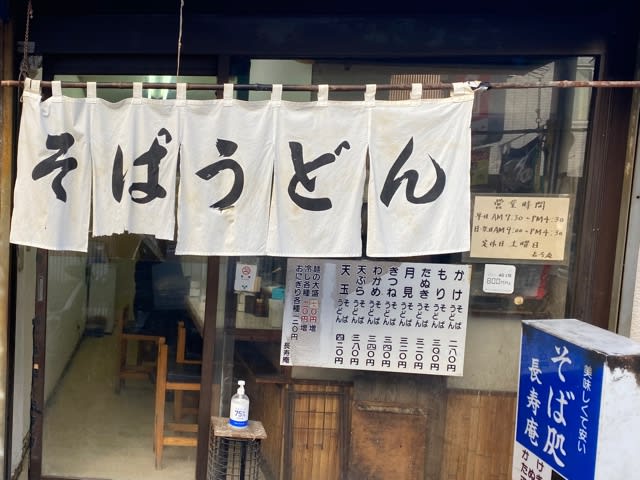 そばうどん
営業時間
平日AM7:30~PM4:30
日・祭日AM9:00~PM4:30
定休日 土曜日
長寿庵
かけ そば うどん 二八〇円
もり そば うどん 三〇〇円
たぬき そば うどん 三一〇円
月見 そば うどん 三二〇円
きつね そば うどん 三四〇円
わかめ そば うどん 三四〇円
天ぷら そば うどん 三八〇円
天玉 そば うどん 四二〇円
麺の大盛
冷し各種
おにぎり各種 一二〇円
長寿庵
75%
美味しくて安い
そば処
長寿庵
かけ
たぬき